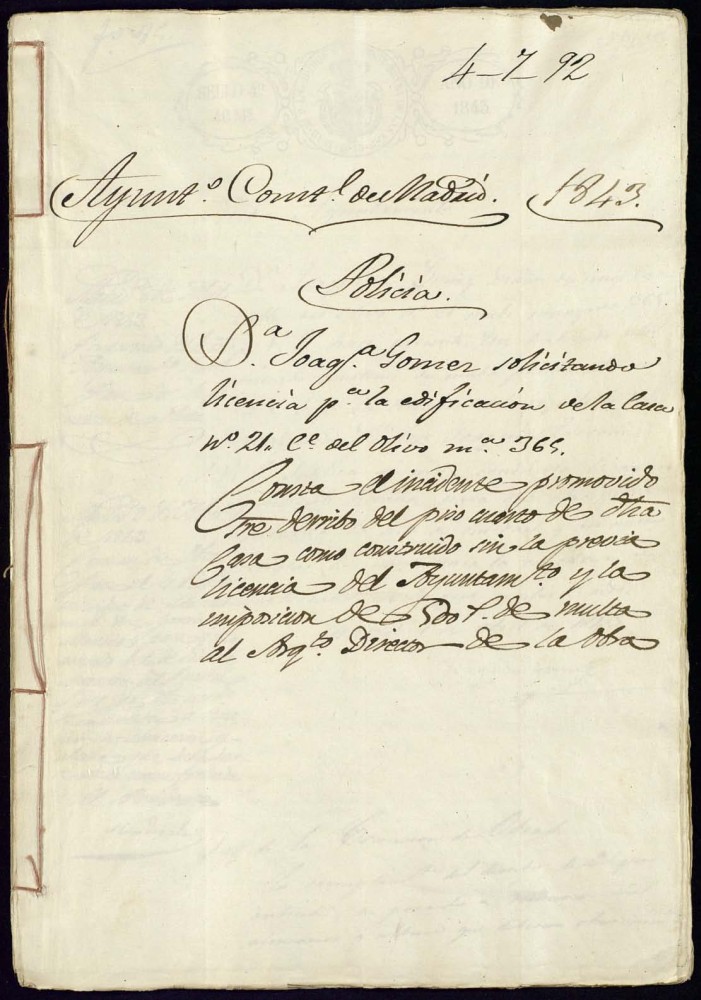 4-7-92
Ayunt.º Const.l de Madrid. 1843.
Policía.
D.ª Joaq.ª Gomez solicitando
licencia p.ª la edificacion de la Casa
nº 21. C.e del Olivo m.ª 365.
Consta el incidente promovido
sre derribo del piso cuarto de dha
Casa como construido sin la previa
licencia del Ayuntam.to y la
imposicion de 500 r.s de multa
al Arq.to Director de la Obra